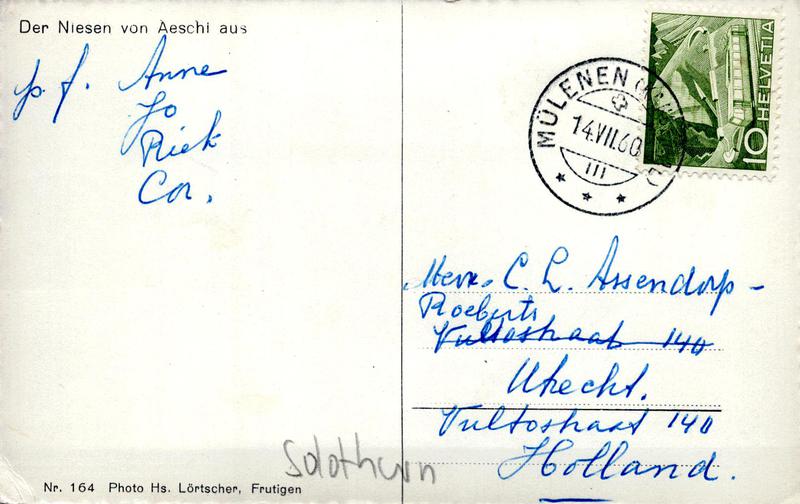 Der Niesen von Aeschi aus
p. f. Anne
Jo
Riek
Cor.
10 HELVETIA
MÜLENEN
14.VII.60
III
Mevr. C. L. Assendorp-
Roeberts
Vultostraat 140
Utrecht.
Vultostraat 140
Holland.
Solothurn
Nr. 164 Photo Hs. Lörtscher, Frutigen